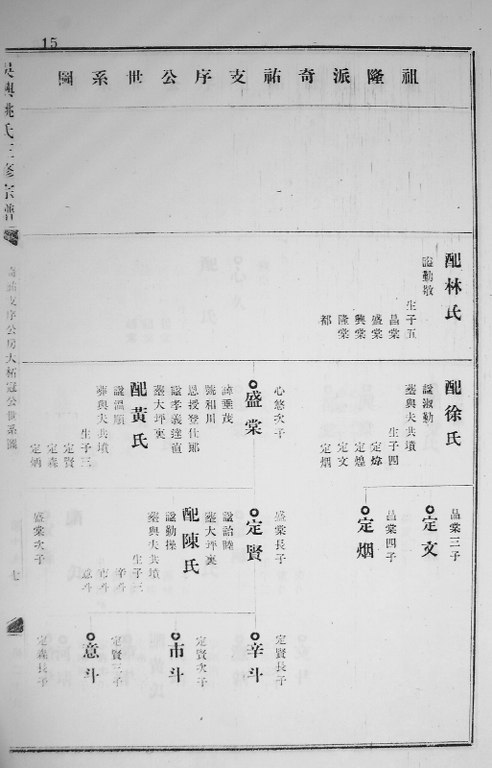 15
祖隆派奇祐支序公世系圖
配林氏
諡勤敬
生子五
昌棠
盛棠
興棠
隆棠
都
配徐氏
諡淑勤
塟與夫共墳
生子四
定煒
定煌
定文
定烟
心悠次子
盛棠
諱垂茂
號和川
恩授登仕郎
諡孝義達值
塟大坪裏
配黃氏
諡溫順
塟與夫共墳
生子三
定賢
定森
定炳
昌棠三子
定文
昌棠四子
定烟
盛棠長子
定賢
諡詒睦
塟大坪裏
配陳氏
諡勤操
塟與夫共墳
生子三
辛斗
市斗
意斗
盛棠次子
定賢長子
辛斗
定賢次子
市斗
定賢三子
意斗
定森長子
吳興姚氏三修宗譜
支序公房大柘冠公世系圖
七